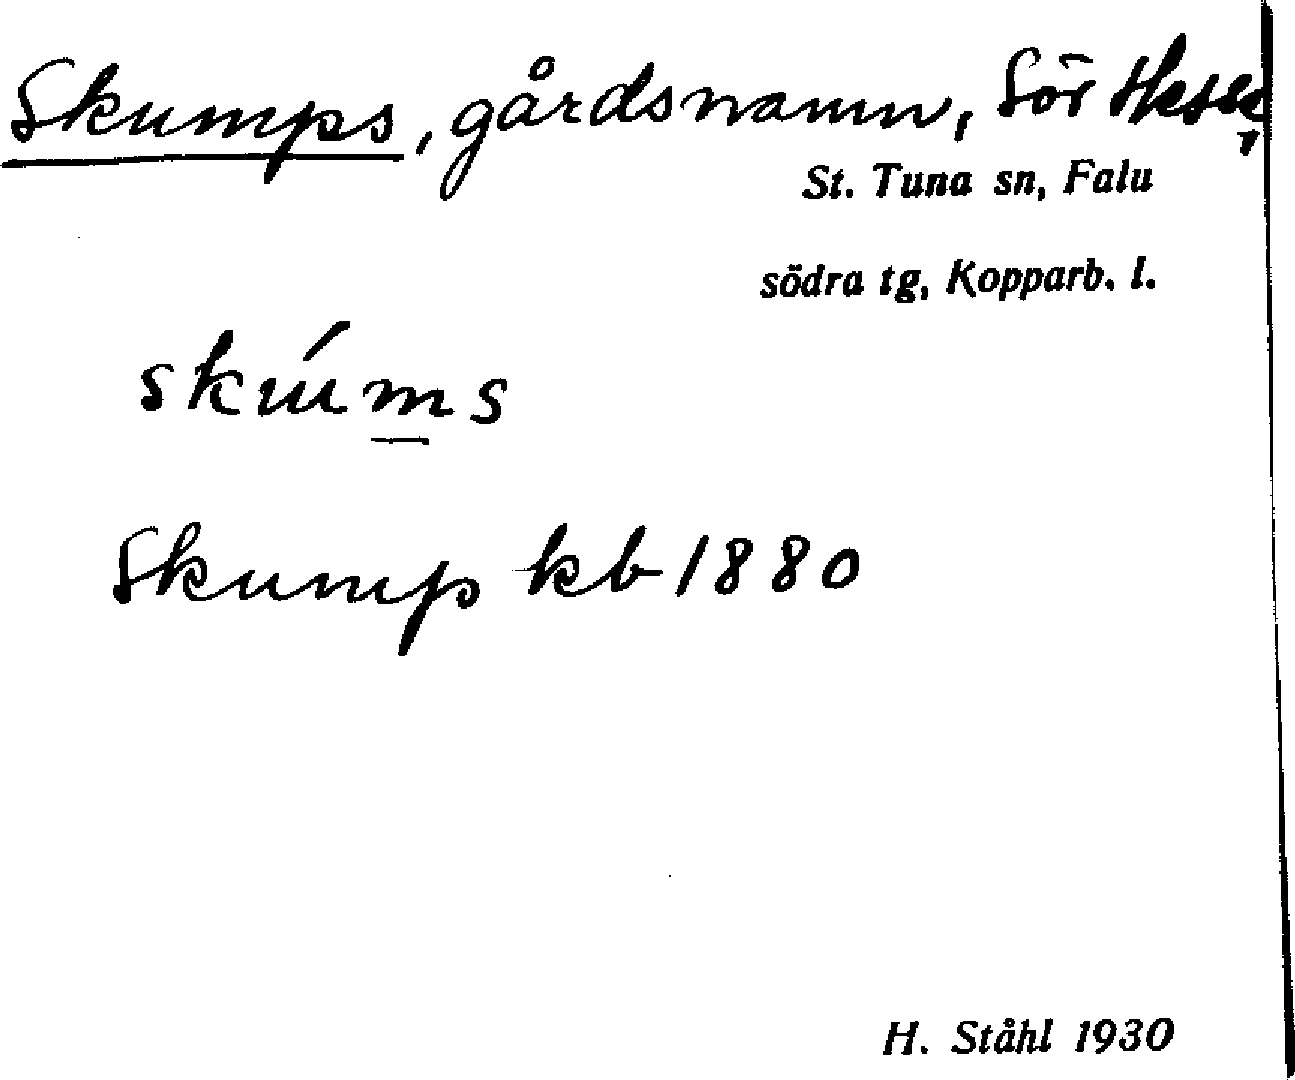 Skumps, gårdsnamn, Sör
St. Tuna sn, Falu
södra tg, Kopparb. l.
skúms
Skump kb 1880
H. Ståhl 1930